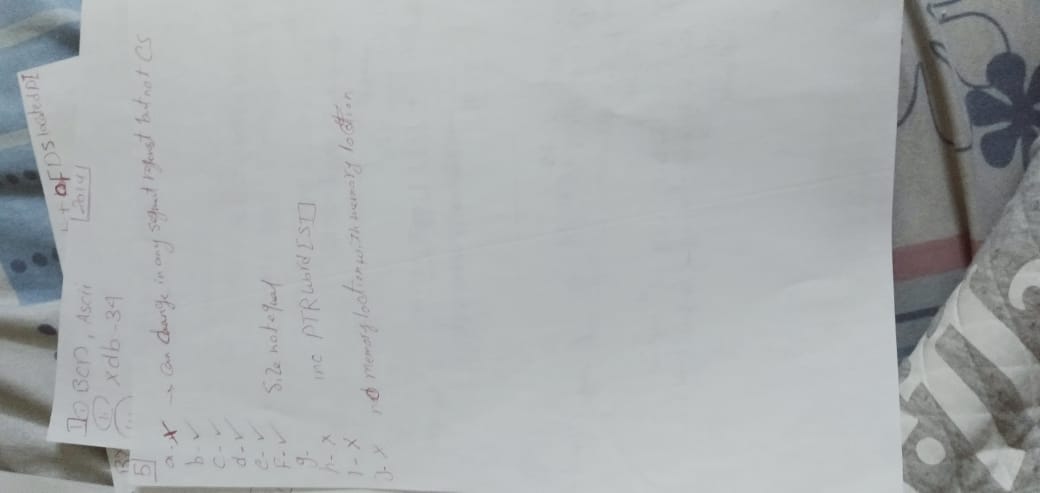 I) BCD, Ascii
L+ of DS loaded DI
2014
xdb-34
5
a-x → Can change in any segment but not CS
b-✓
c-✓
d-✓
e-✓
F-✓ Size not equal
g-
h-x inc PTR word [SI]
I-x
J-x not memory location with memory location